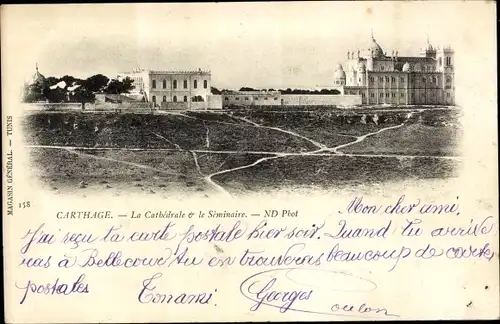 MAGASIN GÉNÉRAL. - TUNIS
158
CARTHAGE. — La Cathédrale & le Séminaire. — ND Phot
Mon cher ami.
J'ai reçu ta carte postale hier soir. Quand tu arrive
ras à Bellecour tu en trouveras beaucoup de cartes
postales Ton ami Georges